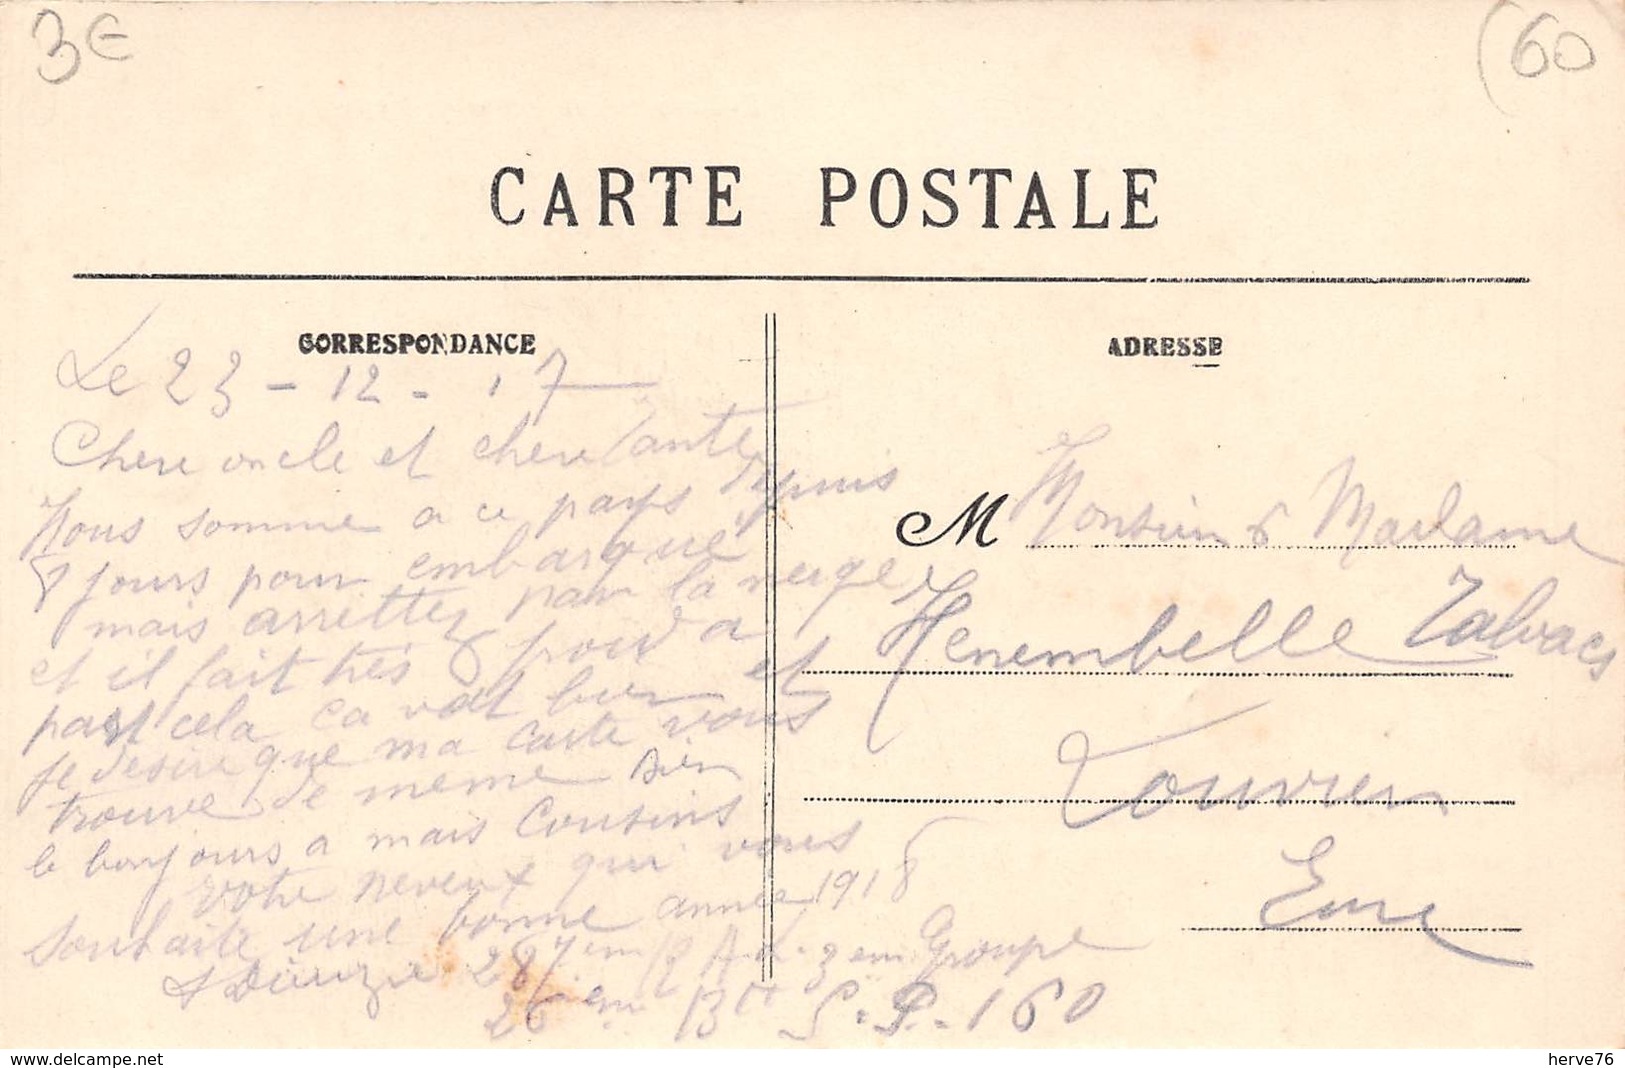 3€
(60
CARTE POSTALE
CORRESPONDANCE
ADRESSE
Le 23 - 12 - 17
Chere oncle et chere tante
Nous somme a ce pays depuis
8 jours pour embarque
mais arrettez par la neige
et il fait tres froid a
part cela ca vat bien et
Je desire que ma carte vous
trouve de meme bien
le bonjours a mais Cousins
votre neveux qui vous
souhaite une bonne année 1918
287em R A 3em Groupe
26em Bt S. P. 160
M Monsieur & Madame
Henembelle Tabacs
Louviers
Eure
www.delcampe.net
herve76